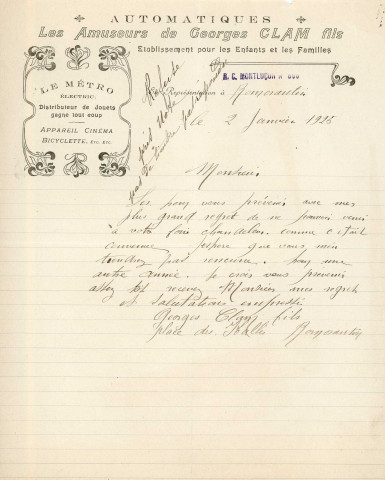 AUTOMATIQUES
Les Amuseurs de Georges CLAM fils
Etablissement pour les Enfants et les Familles
LE MÉTRO
ELECTRIC.
Distributeur de Jouets
gagne tout coup
APPAREIL CINÉMA
BICYCLETTE, ETC. ETC.
R. C. MONTLUÇON
Représentation à Romorantin
le 2 Janvier 1926
Refusée
pris note
Monsieur
pour vous prévenir avec mes
plus grand regret de ne pouvoir venir
à votre foire chandeleur comme c'était
convenue, j'espère que vous m'en
tiendrez pas rancune. pour une
autre année. je crois vous prévenir
assez tôt recevez Monsieur mes regret
et salutations empressées
Georges Clam fils
place des Halles Romorantin